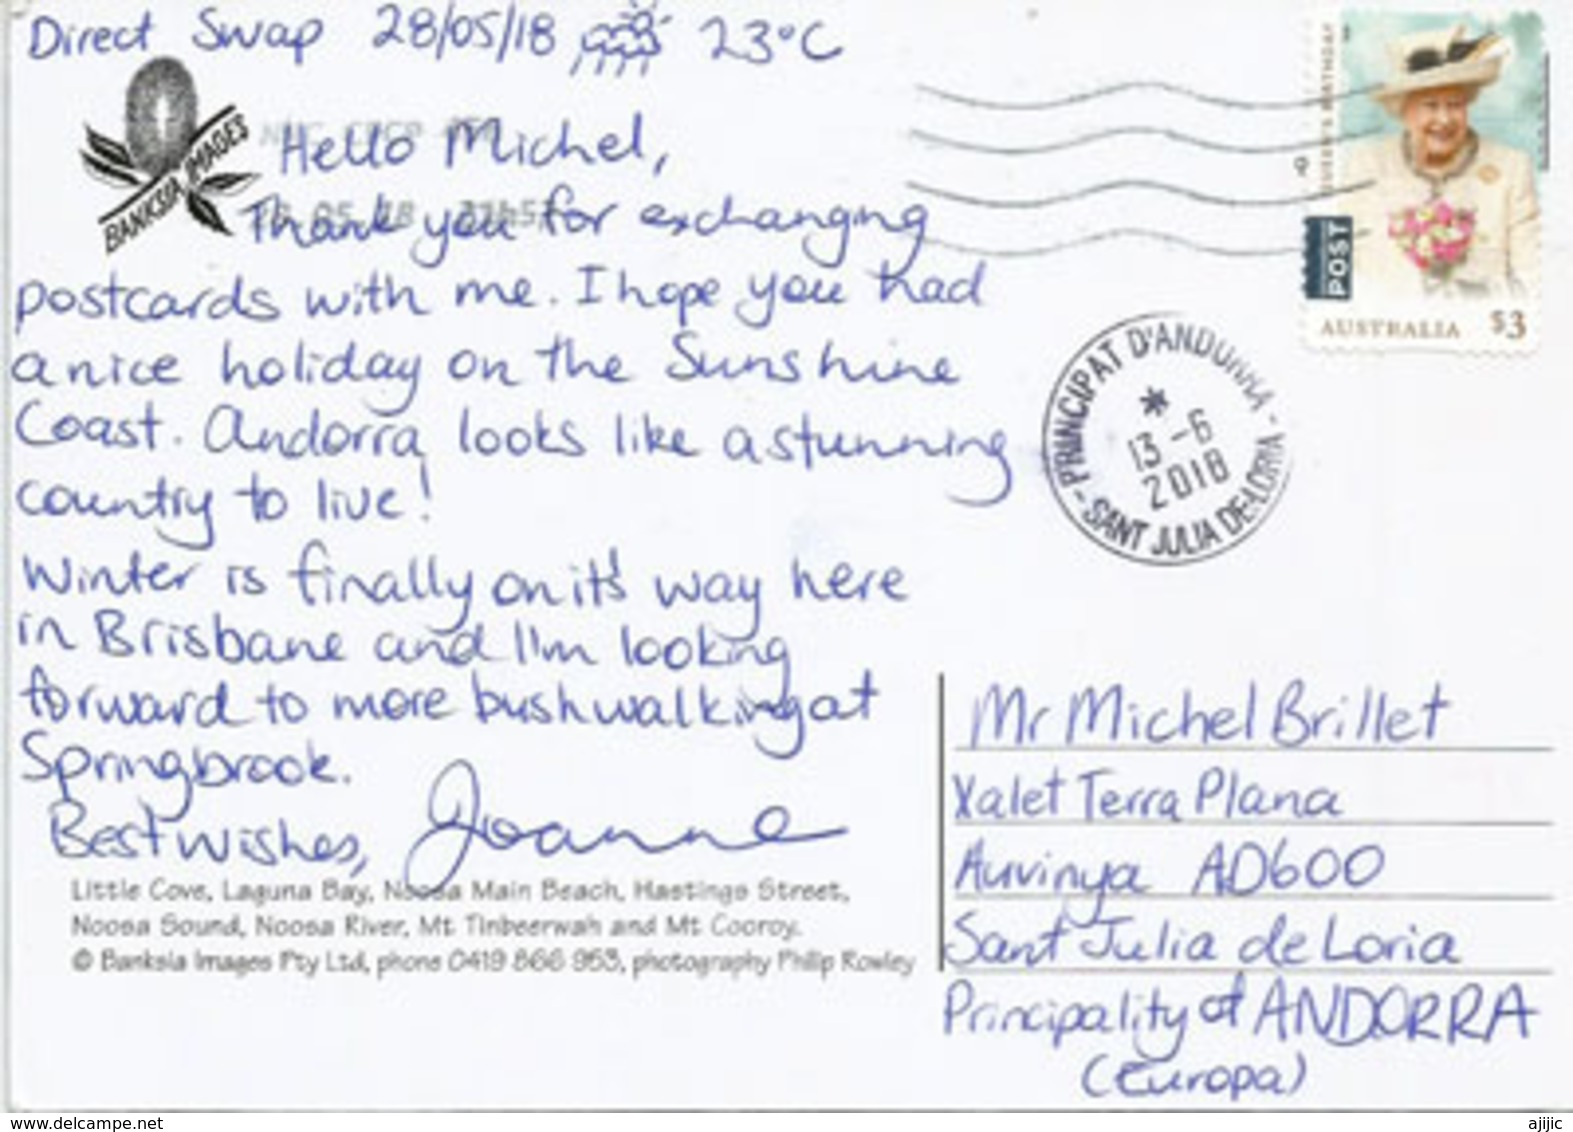 Direct Swap 28/05/18 23°C
BANKSIA IMAGES
Hello Michel,
Thank you for exchanging
postcards with me. I hope you had
a nice holiday on the Sunshine
Coast. Andorra looks like a stunning
country to live!
Winter is finally on it's way here
in Brisbane and I'm looking
forward to more bushwalking at
Springbrook.
Best wishes, Joanne
Little Cove, Laguna Bay, Noosa Main Beach, Hastings Street,
Noosa Sound, Noosa River, Mt Tinbeerwah and Mt Cooroy.
© Banksia Images Pty Ltd, phone 0419 866 953, photography Philip Rowley
QUEEN'S BIRTHDAY
POST
AUSTRALIA $3
PRINCIPAT D'ANDORRA
13-6
2018
SANT JULIA DE LORIA
Mr Michel Brillet
Xalet Terra Plana
Auvinya AD600
Sant Julia de Loria
Principality of ANDORRA
(Europa)
www.delcampe.net
ajijic